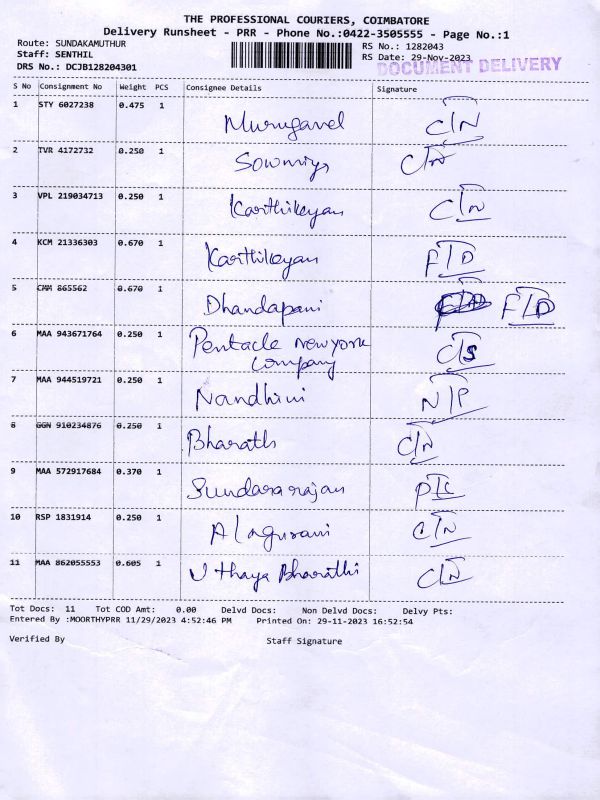 THE PROFESSIONAL COURIERS, COIMBATORE
Delivery Runsheet - PRR - Phone No.:0422-3505555 - Page No.:1
Route: SUNDAKAMUTHUR
Staff: SENTHIL
DRS No.: DCJB128204301
RS No.: 1282043
RS Date: 29-Nov-2023
DOCUMENT DELIVERY
S No Consignment No Weight PCS Consignee Details Signature
1 STY 6027238 0.475 1 Murugavel C/N
2 TVR 4172732 0.250 1 Sowmiya C/N
3 VPL 219034713 0.250 1 Karthikeyan C/N
4 KCM 21336303 0.670 1 Karthikeyan F/D
5 CMM 865562 0.670 1 Dhandapani F/D
6 MAA 943671764 0.250 1 Pentacle Newyork C/S
Company
7 MAA 944519721 0.250 1 Nandhini N/P
8 GGN 910234876 0.250 1 Bharath C/N
9 MAA 572917684 0.370 1 Sundararajan P/C
10 RSP 1831914 0.250 1 Alagurani C/N
11 MAA 862055553 0.605 1 Uthaya Bharathi C/N
Tot Docs: 11 Tot COD Amt: 0.00 Delvd Docs: Non Delvd Docs: Delvy Pts:
Entered By :MOORTHYPRR 11/29/2023 4:52:46 PM Printed On: 29-11-2023 16:52:54
Verified By Staff Signature